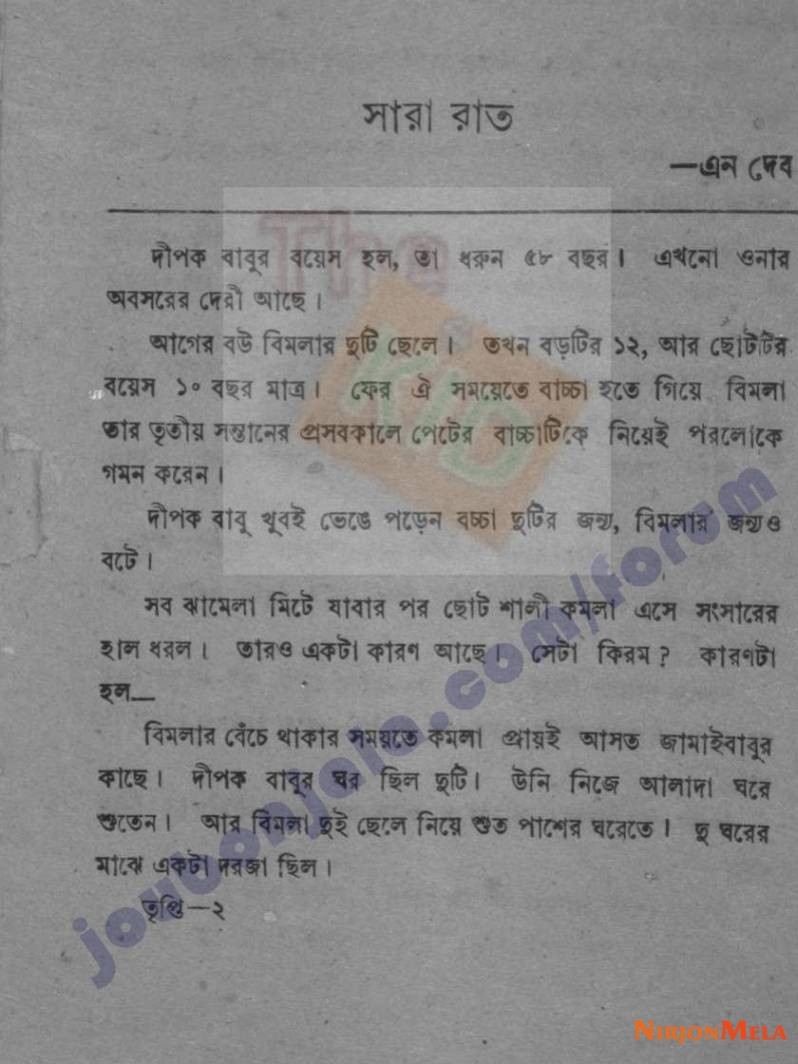 সারা রাত
—এন দেব
দীপক বাবুর বয়েস হল, তা ধরুন ৫৮ বছর। এখনো ওনার
অবসরের দেরী আছে।
আগের বউ বিমলার দুটি ছেলে। তখন বড়টির ১২, আর ছোটটির
বয়েস ১০ বছর মাত্র। ফের ঐ সময়েতে বাচ্চা হতে গিয়ে বিমলা
তার তৃতীয় সন্তানের প্রসবকালে পেটের বাচ্চাটিকে নিয়েই পরলোকে
গমন করেন।
দীপক বাবু খুবই ভেঙে পড়েন বচ্চা দুটির জন্য, বিমলার জন্যও
বটে।
সব ঝামেলা মিটে যাবার পর ছোট শালী কমলা এসে সংসারের
হাল ধরল। তারও একটা কারণ আছে। সেটা কিরম? কারণটা
হল—
বিমলার বেঁচে থাকার সময়তে কমলা প্রায়ই আসত জামাইবাবুর
কাছে। দীপক বাবুর ঘর ছিল দুটি। উনি নিজে আলাদা ঘরে
শুতেন। আর বিমলা দুই ছেলে নিয়ে শুত পাশের ঘরেতে। দু ঘরের
মাঝে একটা দরজা ছিল।
তৃপ্তি—২
The
KID
joubonjala.com/forum
NIRJONMELA